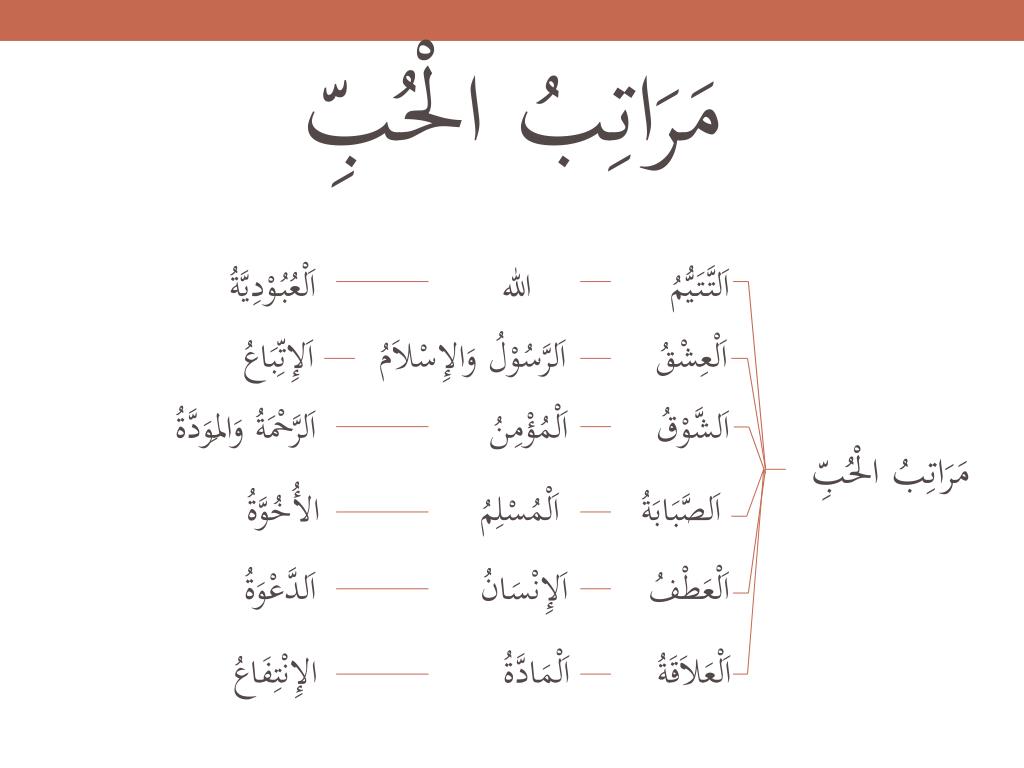 مَرَاتِبُ الْحُبِّ
اَلتَّتَيُّمُ الله اَلْعُبُوْدِيَّةُ
اَلْعِشْقُ اَلرَّسُوْلُ وَالإِسْلاَمُ اَلإِتِّبَاعُ
اَلشَّوْقُ اَلْمُؤْمِنُ اَلرَّحْمَةُ وَالمَوَدَّةُ
مَرَاتِبُ الْحُبِّ
اَلصَّبَابَةُ اَلْمُسْلِمُ الأُخُوَّةُ
اَلْعَطْفُ اَلإِنْسَانُ اَلدَّعْوَةُ
اَلْعَلاَقَةُ اَلْمَادَّةُ الإِنْتِفَاعُ